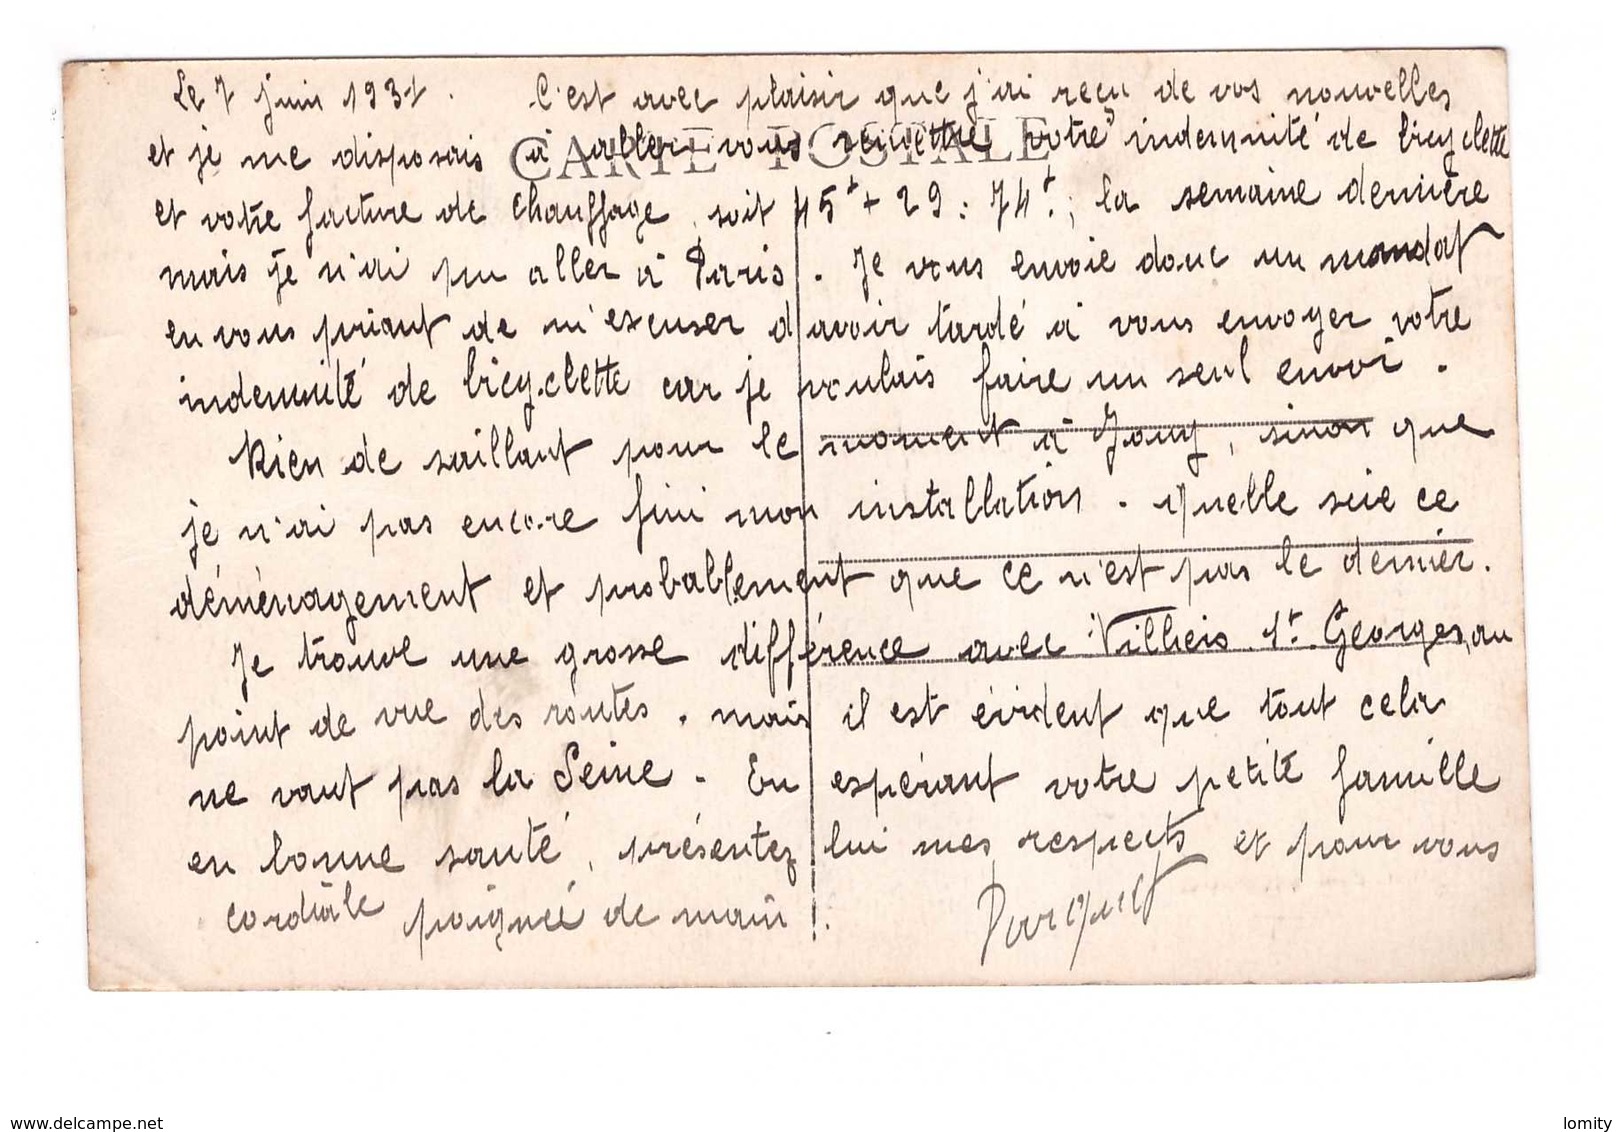 Le 7 juin 1931. C'est avec plaisir que j'ai reçu de vos nouvelles
CARTE POSTALE
et je me disposais à aller vous remettre votre indemnité de bicyclette
et votre facture de chauffage, soit 45f + 29 : 74f. ; la semaine dernière
mais je n'ai pu aller à Paris. Je vous envoie donc un mandat
en vous priant de m'excuser d'avoir tardé à vous envoyer votre
indemnité de bicyclette car je voulais faire un seul envoi.
Rien de saillant pour le moment à Jouy, sinon que
je n'ai pas encore fini mon installation. Quelle scie ce
déménagement et probablement que ce n'est pas le dernier.
Je trouve une grosse différence avec Villiers St. Georges, au
point de vue des routes. mais il est évident que tout cela
ne vaut pas la Seine. En espérant votre petite famille
en bonne santé, présentez lui mes respects et pour vous
cordiale poignée de main.
www.delcampe.net
lomity